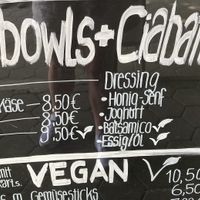 bowls + Ciaba
Dressing
Käse - 8,50€ • Honig-Senf
8,50€ • Joghurt
9,50€ • Balsamico
Essig/Öl
mit VEGAN 10,50
6,50
m. Gemüsesticks